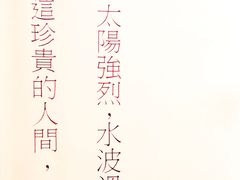 這珍貴的人間，
太陽強烈，水波